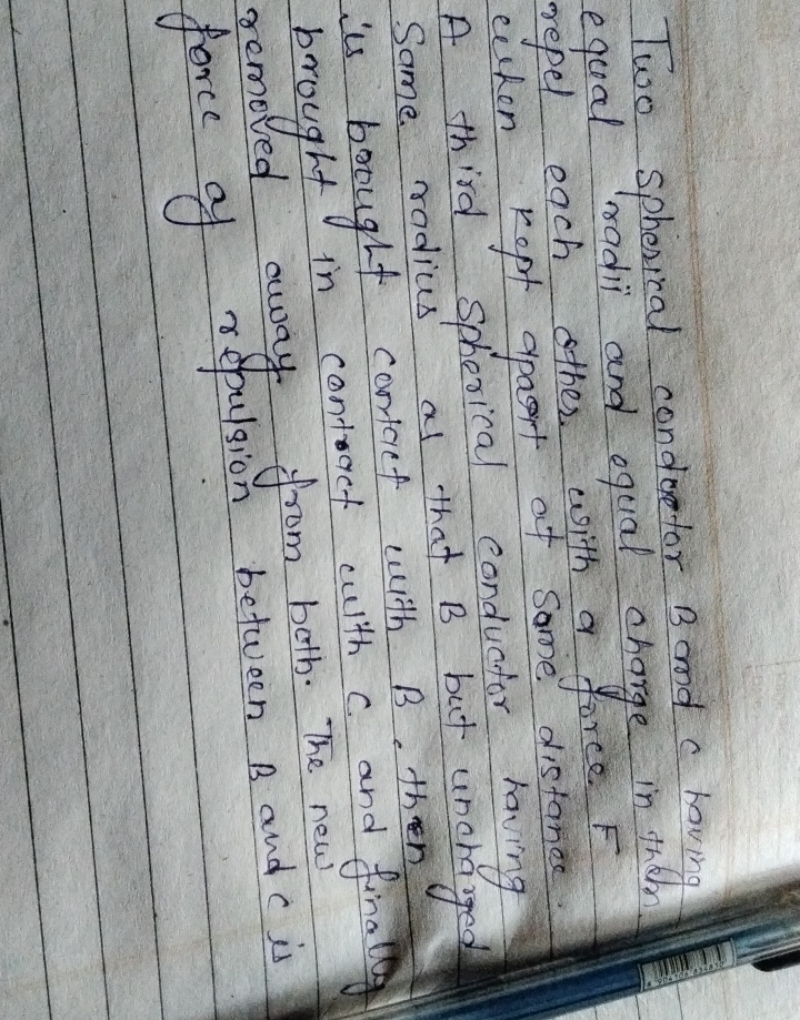 Two spherical conductor B and C having
equal radii and equal charge in them
repel each other with a force F
when kept apart at some distance.
A third spherical conductor having
Same radius as that B but uncharged
is brought contact with B, then
brought in contact with C and finally
removed away from both. The new
force of repulsion between B and C is